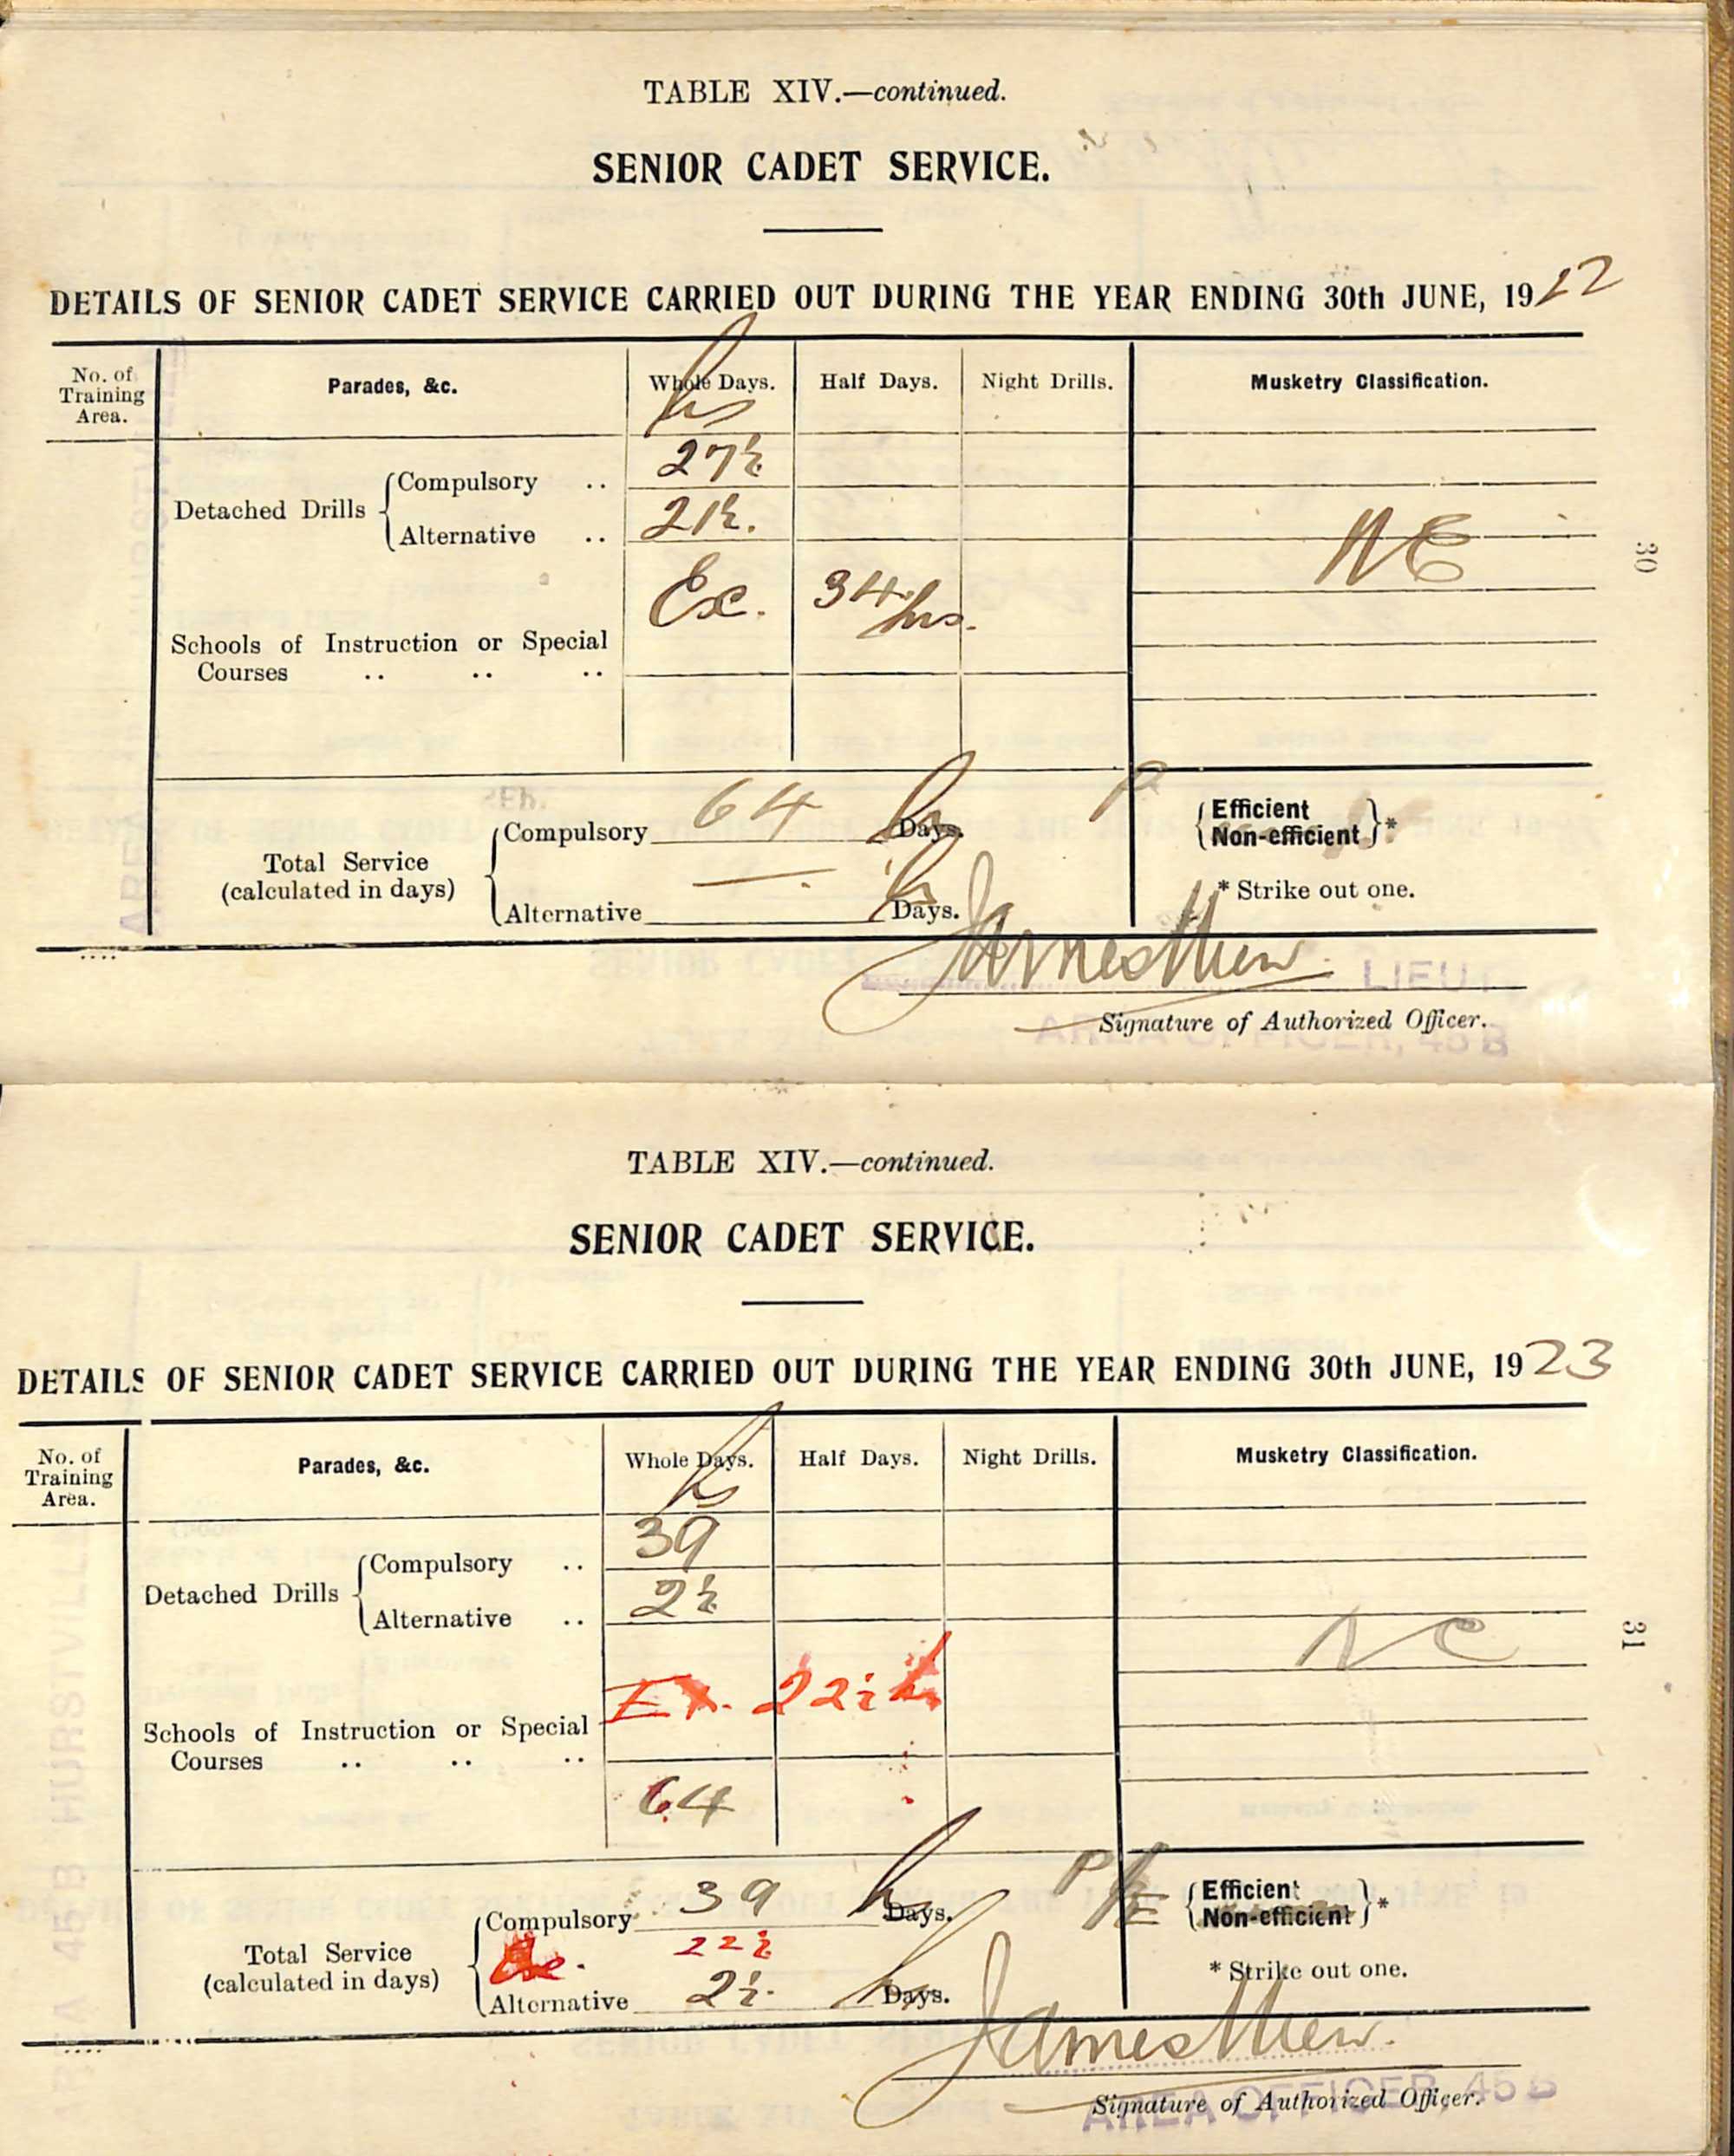 TABLE XIV.—continued.
SENIOR CADET SERVICE.
DETAILS OF SENIOR CADET SERVICE CARRIED OUT DURING THE YEAR ENDING 30th JUNE, 1922
No. of Training Area. Parades, &c. Whole Days. Half Days. Night Drills. Musketry Classification.
hs
Detached Drills Compulsory .. 27½
Alternative .. 2½.
NC
Ex. 34 hrs.
Schools of Instruction or Special
Courses .. .. ..
30
Total Service (calculated in days)
Compulsory 64 Days.
Alternative —. Days.
P
Efficient
Non-efficient *
* Strike out one.
James Mew. LIEUT.
Signature of Authorized Officer.
AREA OFFICER, 45B
TABLE XIV.—continued.
SENIOR CADET SERVICE.
DETAILS OF SENIOR CADET SERVICE CARRIED OUT DURING THE YEAR ENDING 30th JUNE, 1923
No. of Training Area. Parades, &c. Whole Days. Half Days. Night Drills. Musketry Classification.
hs
Detached Drills Compulsory .. 39
Alternative .. 2½
NC
Ex. 22½ h
Schools of Instruction or Special
Courses .. .. ..
64
31
Total Service (calculated in days)
Compulsory 39 Days.
Ex. 22½
Alternative 2½. Days.
P
Efficient
Non-efficient *
* Strike out one.
James Mew.
Signature of Authorized Officer.
AREA OFFICER, 45B
AREA 45B HURSTVILLE